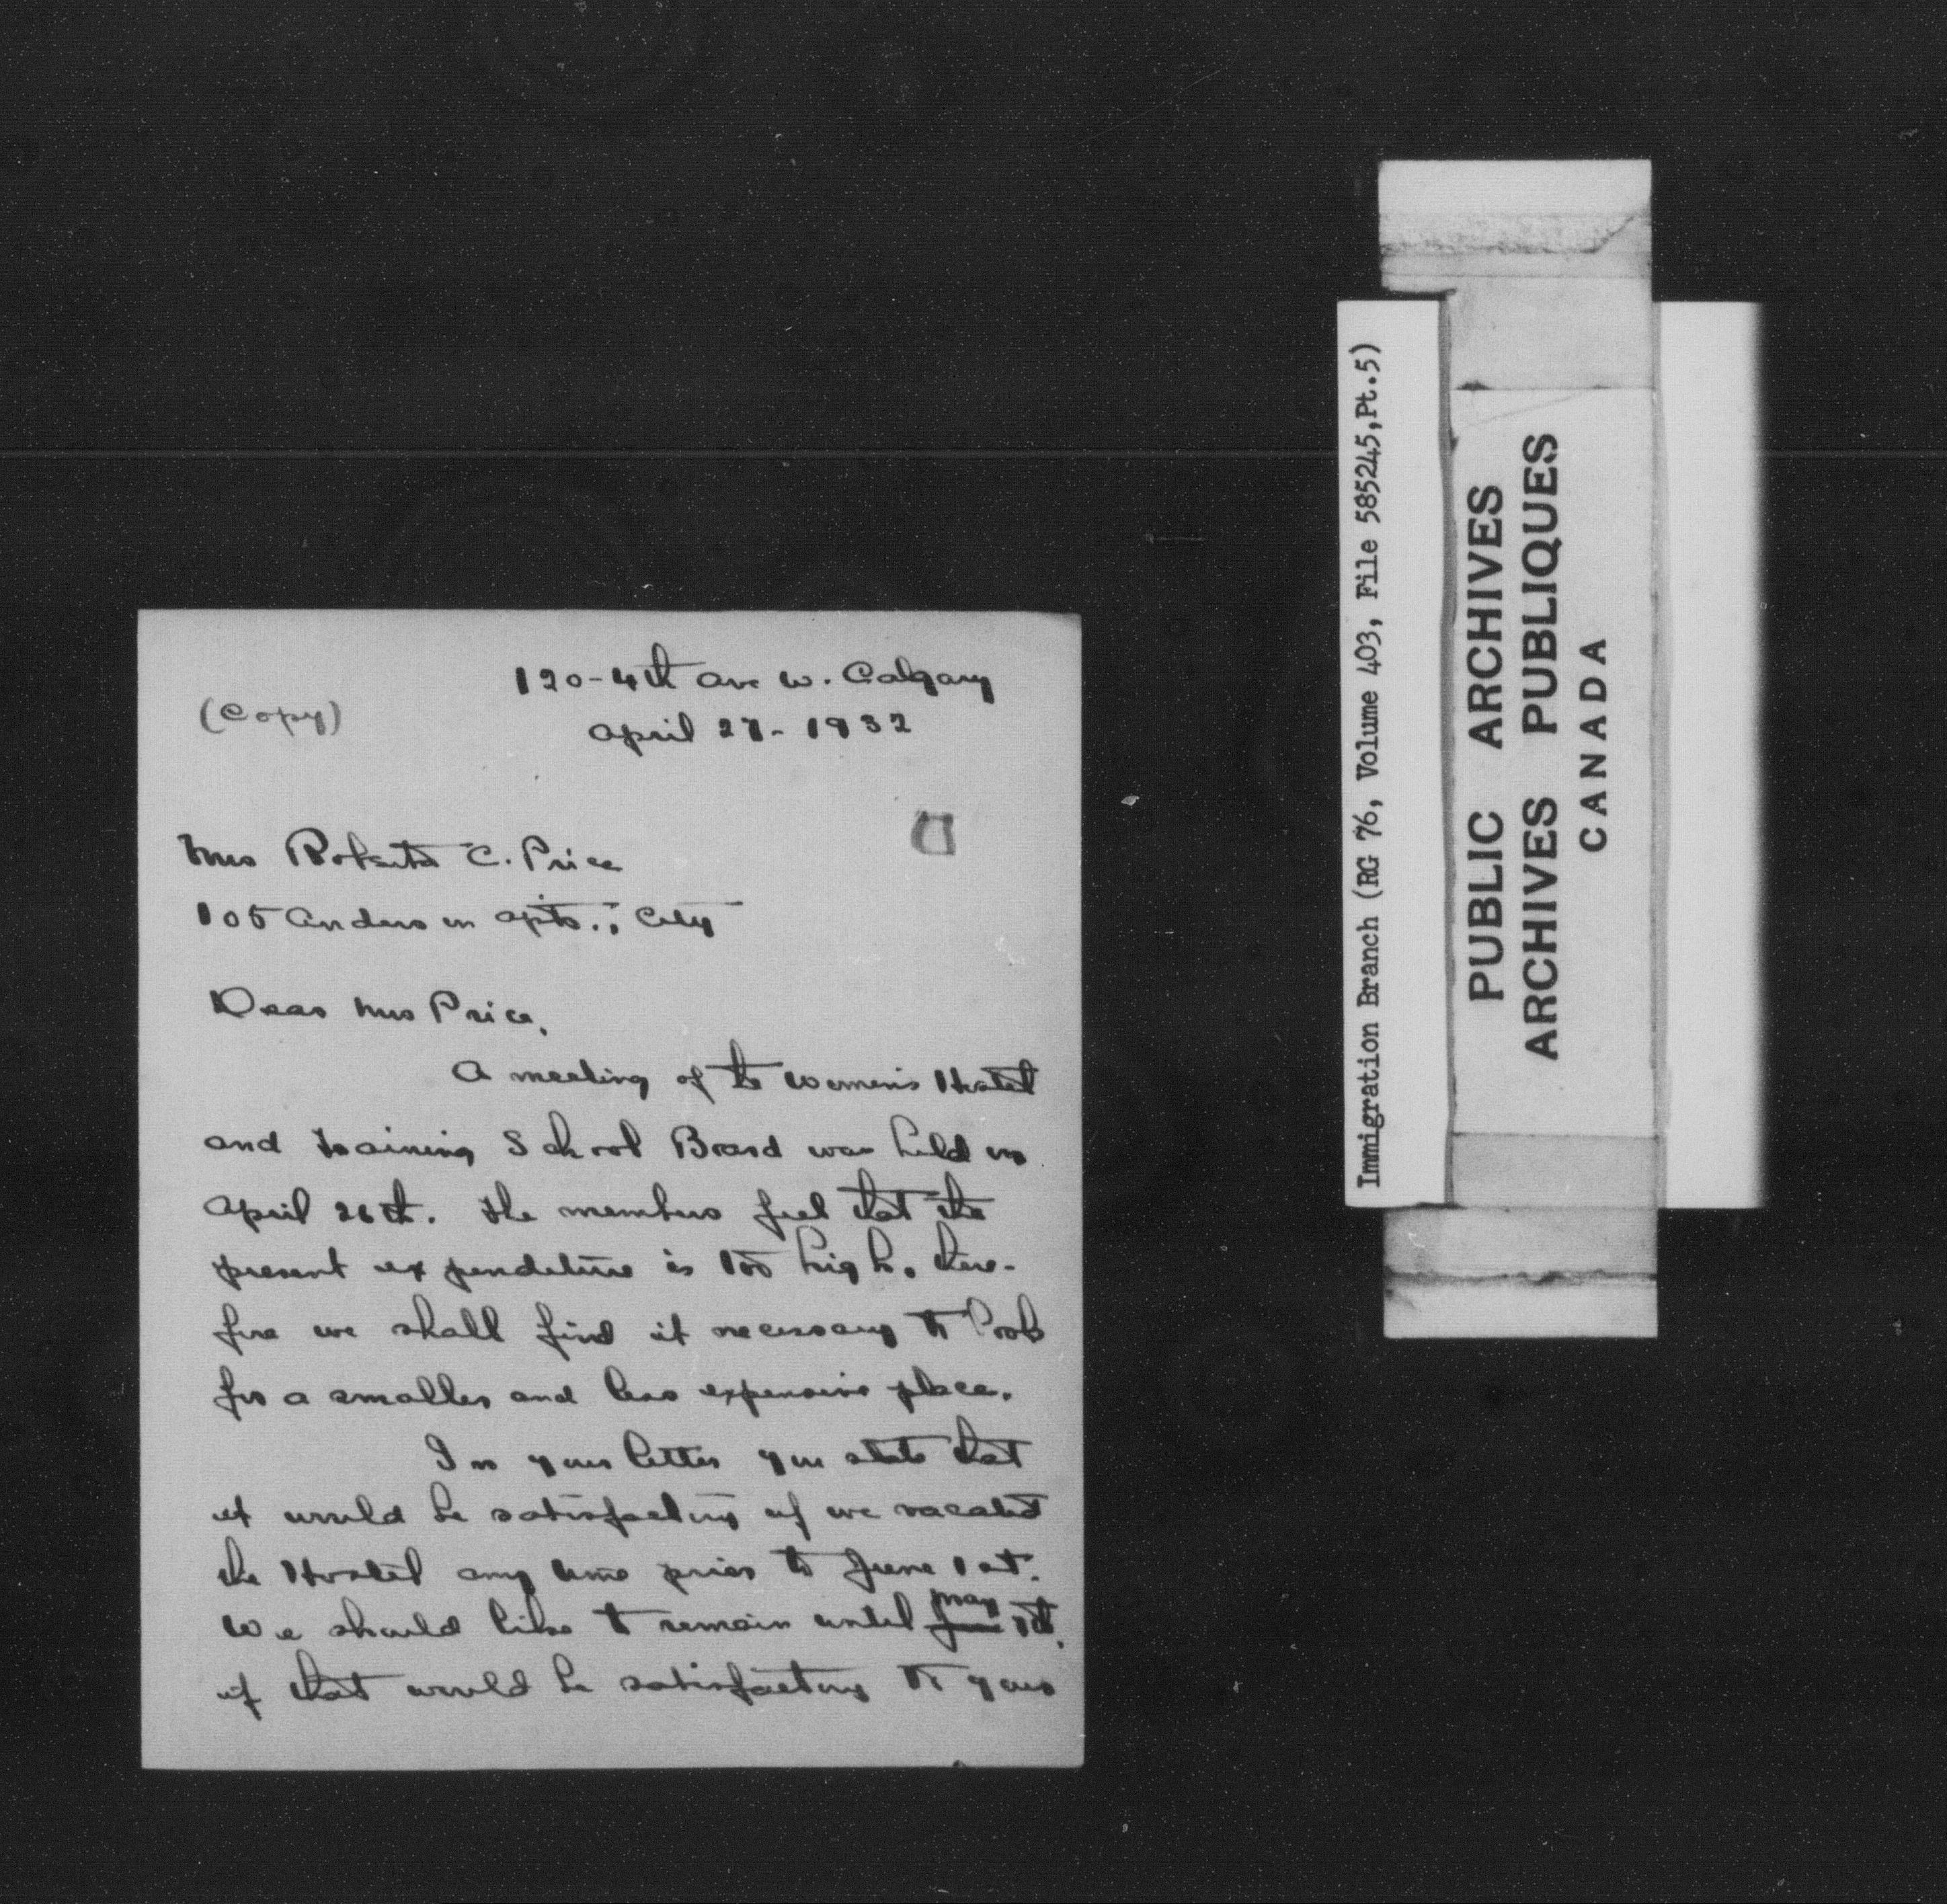 (Copy)
120-4th Ave W. Calgary
April 27 - 1932
Mrs Roberta C. Price
105 Anderson Apts., City
Dear Mrs Price,
A meeting of the Women's Hostel
and Training School Board was held on
April 26th. The members feel that the
present expenditure is too high, there-
fore we shall find it necessary to look
for a smaller and less expensive place.
In your letter you state that
it would be satisfactory if we vacated
the Hostel any time prior to June 1st.
We should like to remain until ~~June~~ May
if that would be satisfactory to your
Immigration Branch (RG 76, Volume 403, File 585245,Pt.5)
PUBLIC ARCHIVES
ARCHIVES PUBLIQUES
CANADA